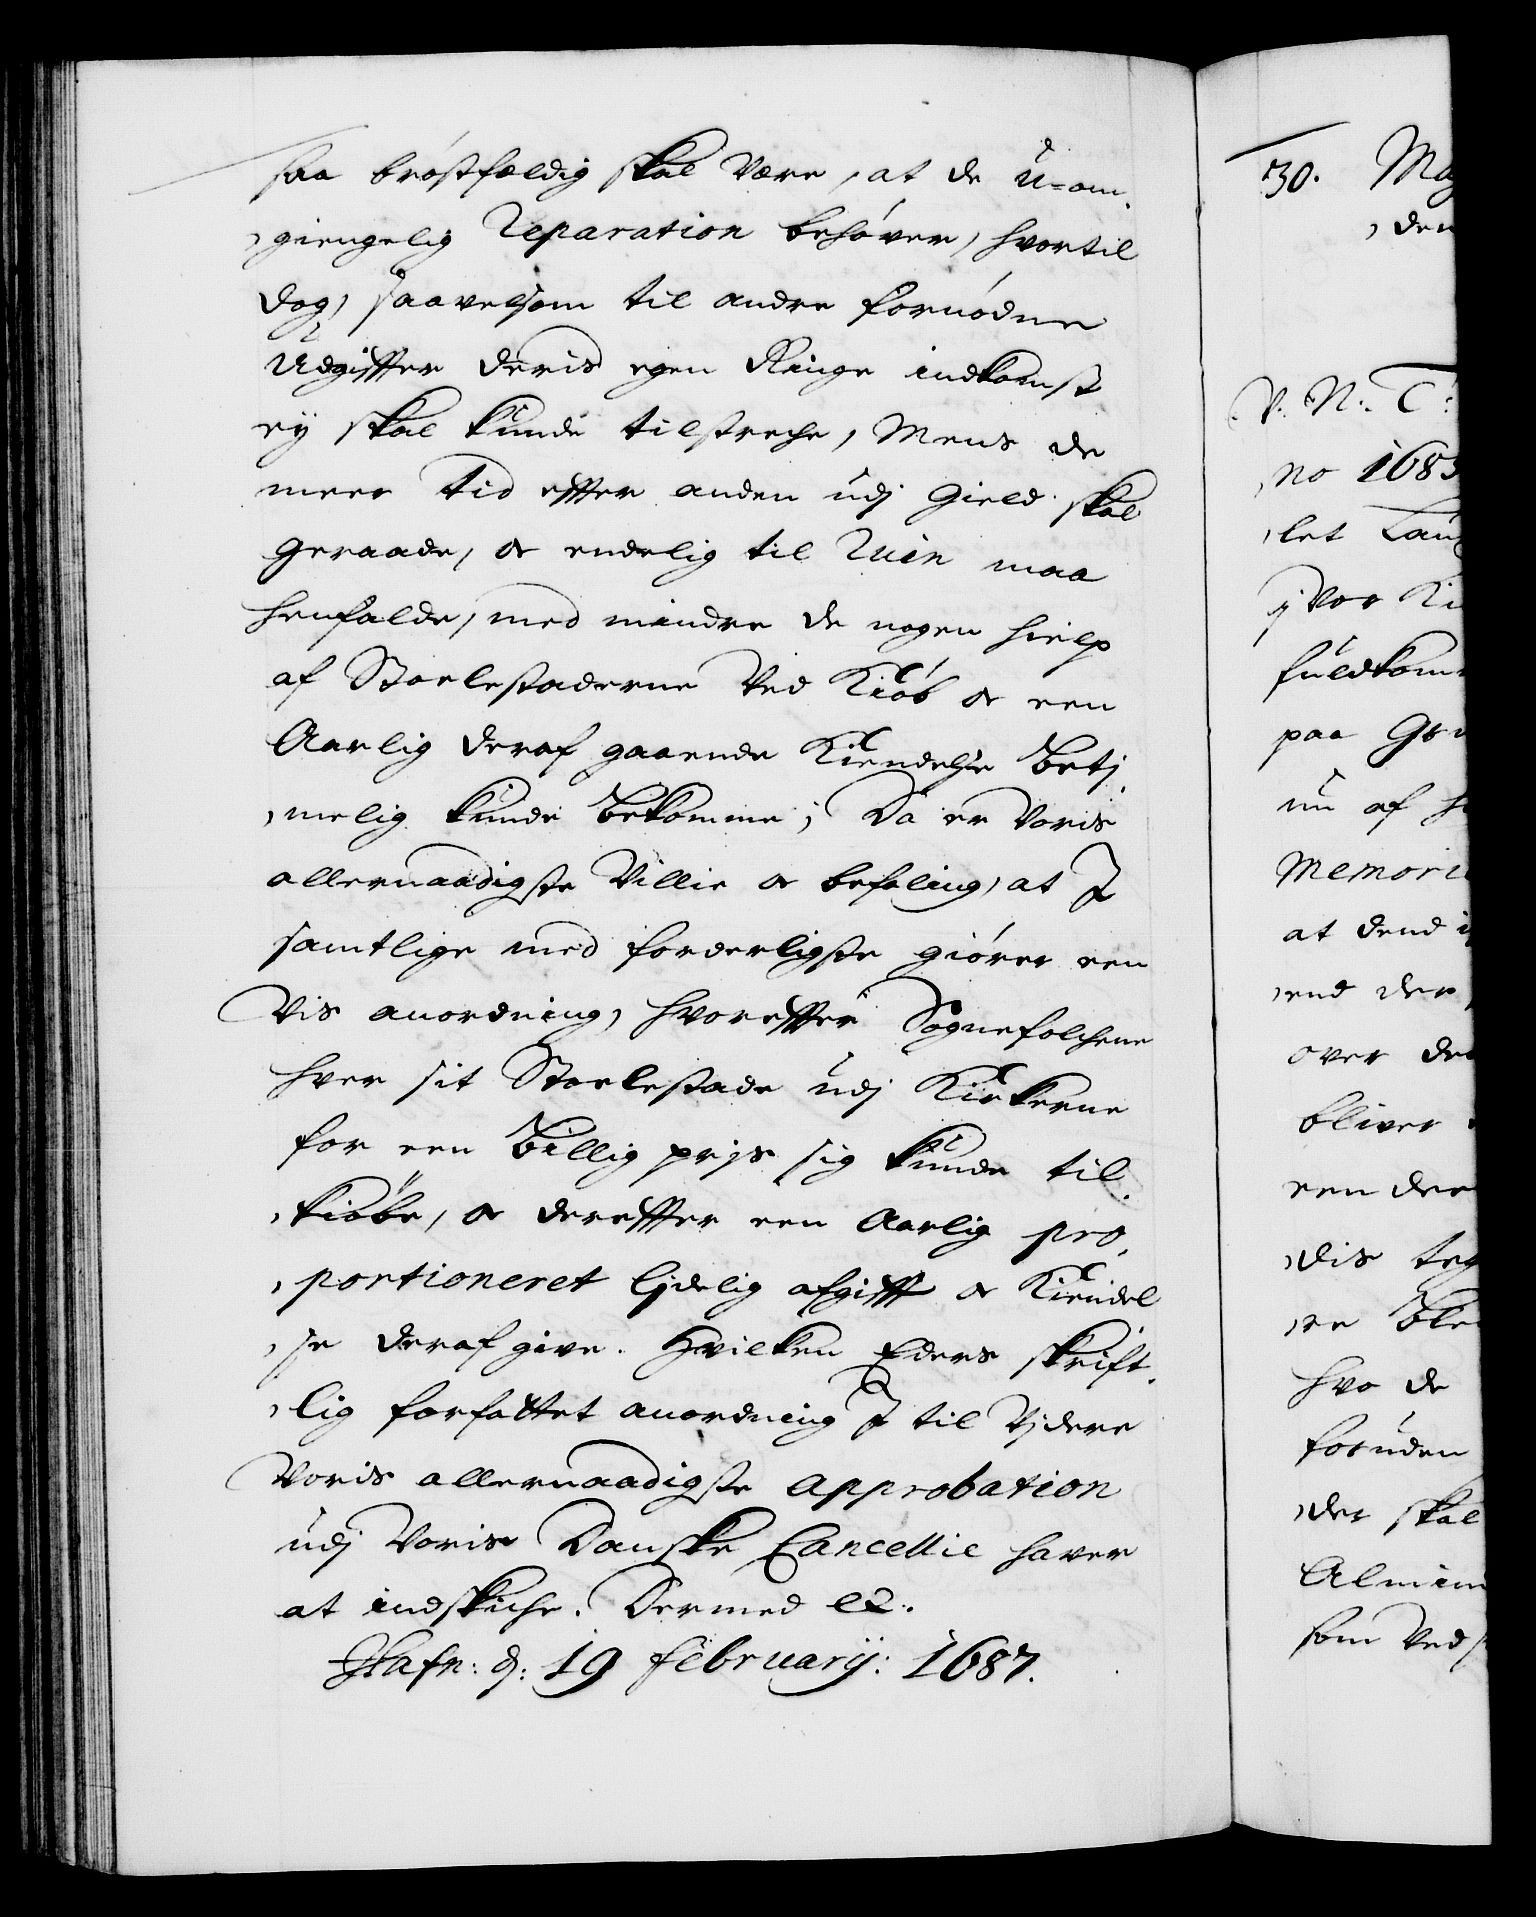 saa bröstfeldig skal være, at de u=om-
giengelig Reparation behöver, hvortil
dog, saavelsom til andre fornödne
Udgiffter deris egen Ringe indkomst
ey skal kunde tilstreche, Mens de
meer tid effter anden udj Gield skal
geraade, oc endelig til Ruin maa
henfalde, med mindre de nogen hielp
af Stoelestaderne ved Kiöb oc een
Aarlig deraf gaaende Kiendelse betj-
melig kunde bekomme; Da er voris
allernaadigste Villie oc befaling, at I
samtlige med forderligste giörer een
vis anordning, hvoreffter Sognefolchene
hver sit Stoelestade udj Kirkerne
for een billig prjs sig kunde til-
kiöbe, oc dereffter een Aarlig pro-
portioneret ljdelig afgifft oc Kiendel
se deraf give. Hvilken Eders skrift-
lig forfattet anordning I til vjdere
Voris allernaadigste approbation
udj Voris Danske Cancellie haver
at indskiche. Dermed etc.
Hafn: d: 19 februarij: 1687.
30. Ma
den
V. N. T:
no 168
let Lau
vor Ki
fuldkom
paa Gr
nu af h
Memori
at dend
end der
over de
bliver
een der
dis teg
re ble
hvo de
foruden
der skal
Almin
som ved